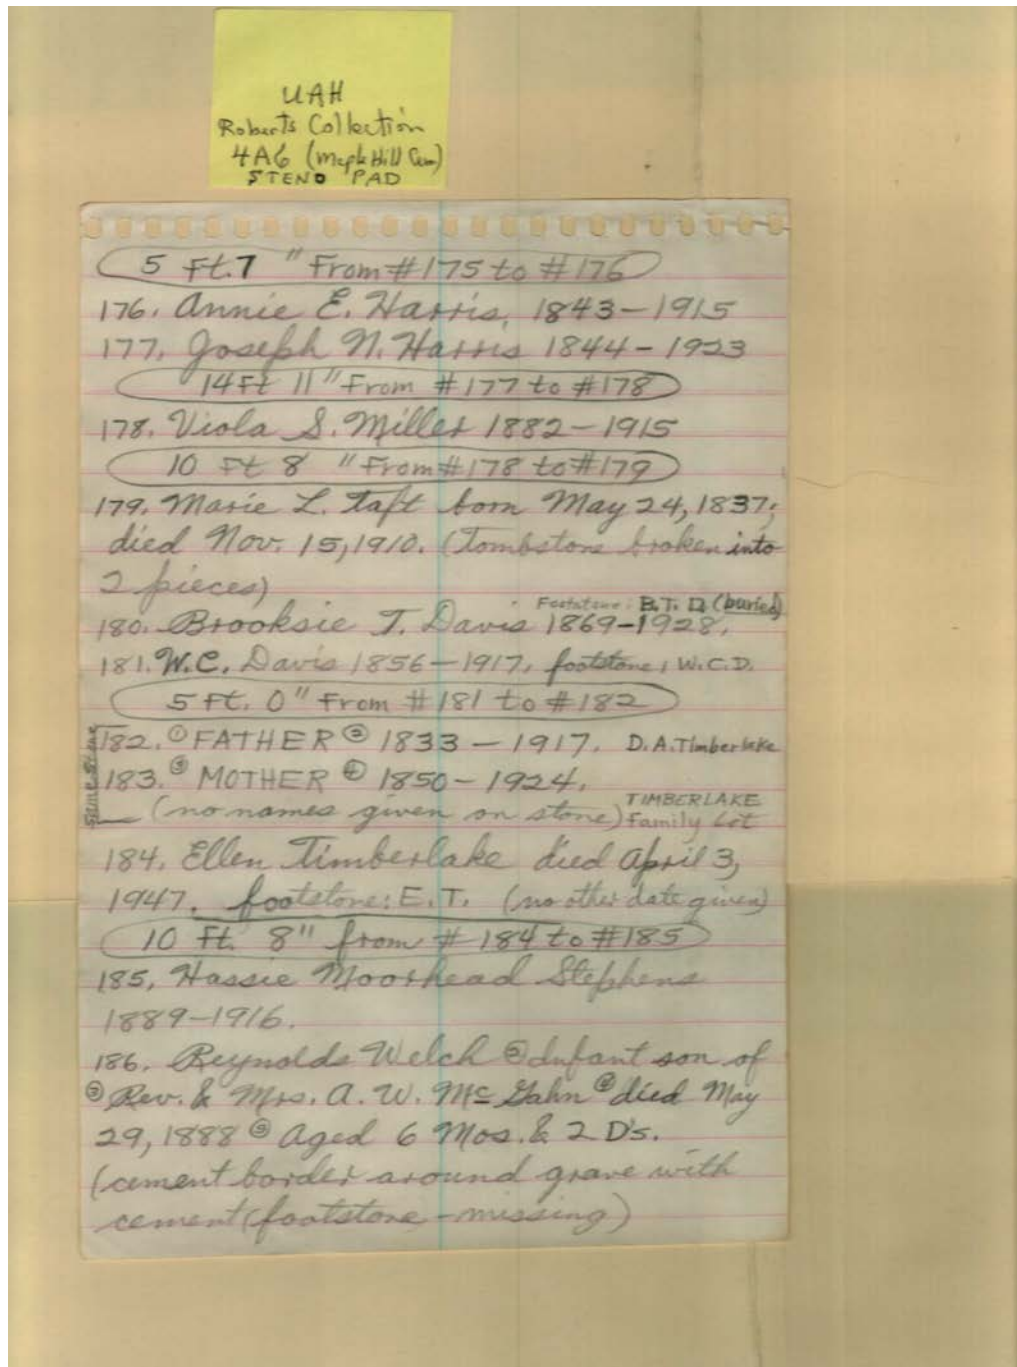 UAH
Roberts Collection
4A6 (Maple Hill Cem)
STENO PAD
5 Ft. 7 " From #175 to #176
176. Annie E. Harris, 1843-1915
177. Joseph N. Harris 1844-1923
14 Ft 11" From #177 to #178
178. Viola S. Miller 1882-1915
10 Ft 8 " From #178 to #179
179. Marie L. Taft born May 24, 1837;
died Nov. 15, 1910. (Tombstone broken into
2 pieces)
Footstone: B.T.D (buried)
180. Brooksie T. Davis 1869-1928.
181. W.C. Davis 1856-1917. footstone: W.C.D.
5 Ft. 0" From #181 to #182
same stone
182. ① FATHER ② 1833-1917. D.A. Timberlake
183. ③ MOTHER ④ 1850-1924.
(no names given on stone) TIMBERLAKE
Family Lot
184. Ellen Timberlake died April 3,
1947. footstone: E.T. (no other date given)
10 Ft. 8" from # 184 to #185
185. Hassie Moorhead Stephens
1889-1916.
186. Reynolds Welch ② Infant son of
③ Rev. & Mrs. A. W. Mc Gahn ④ died May
29, 1888 ⑤ Aged 6 Mos. & 2 D's.
(cement border around grave with
cement (footstone - missing)